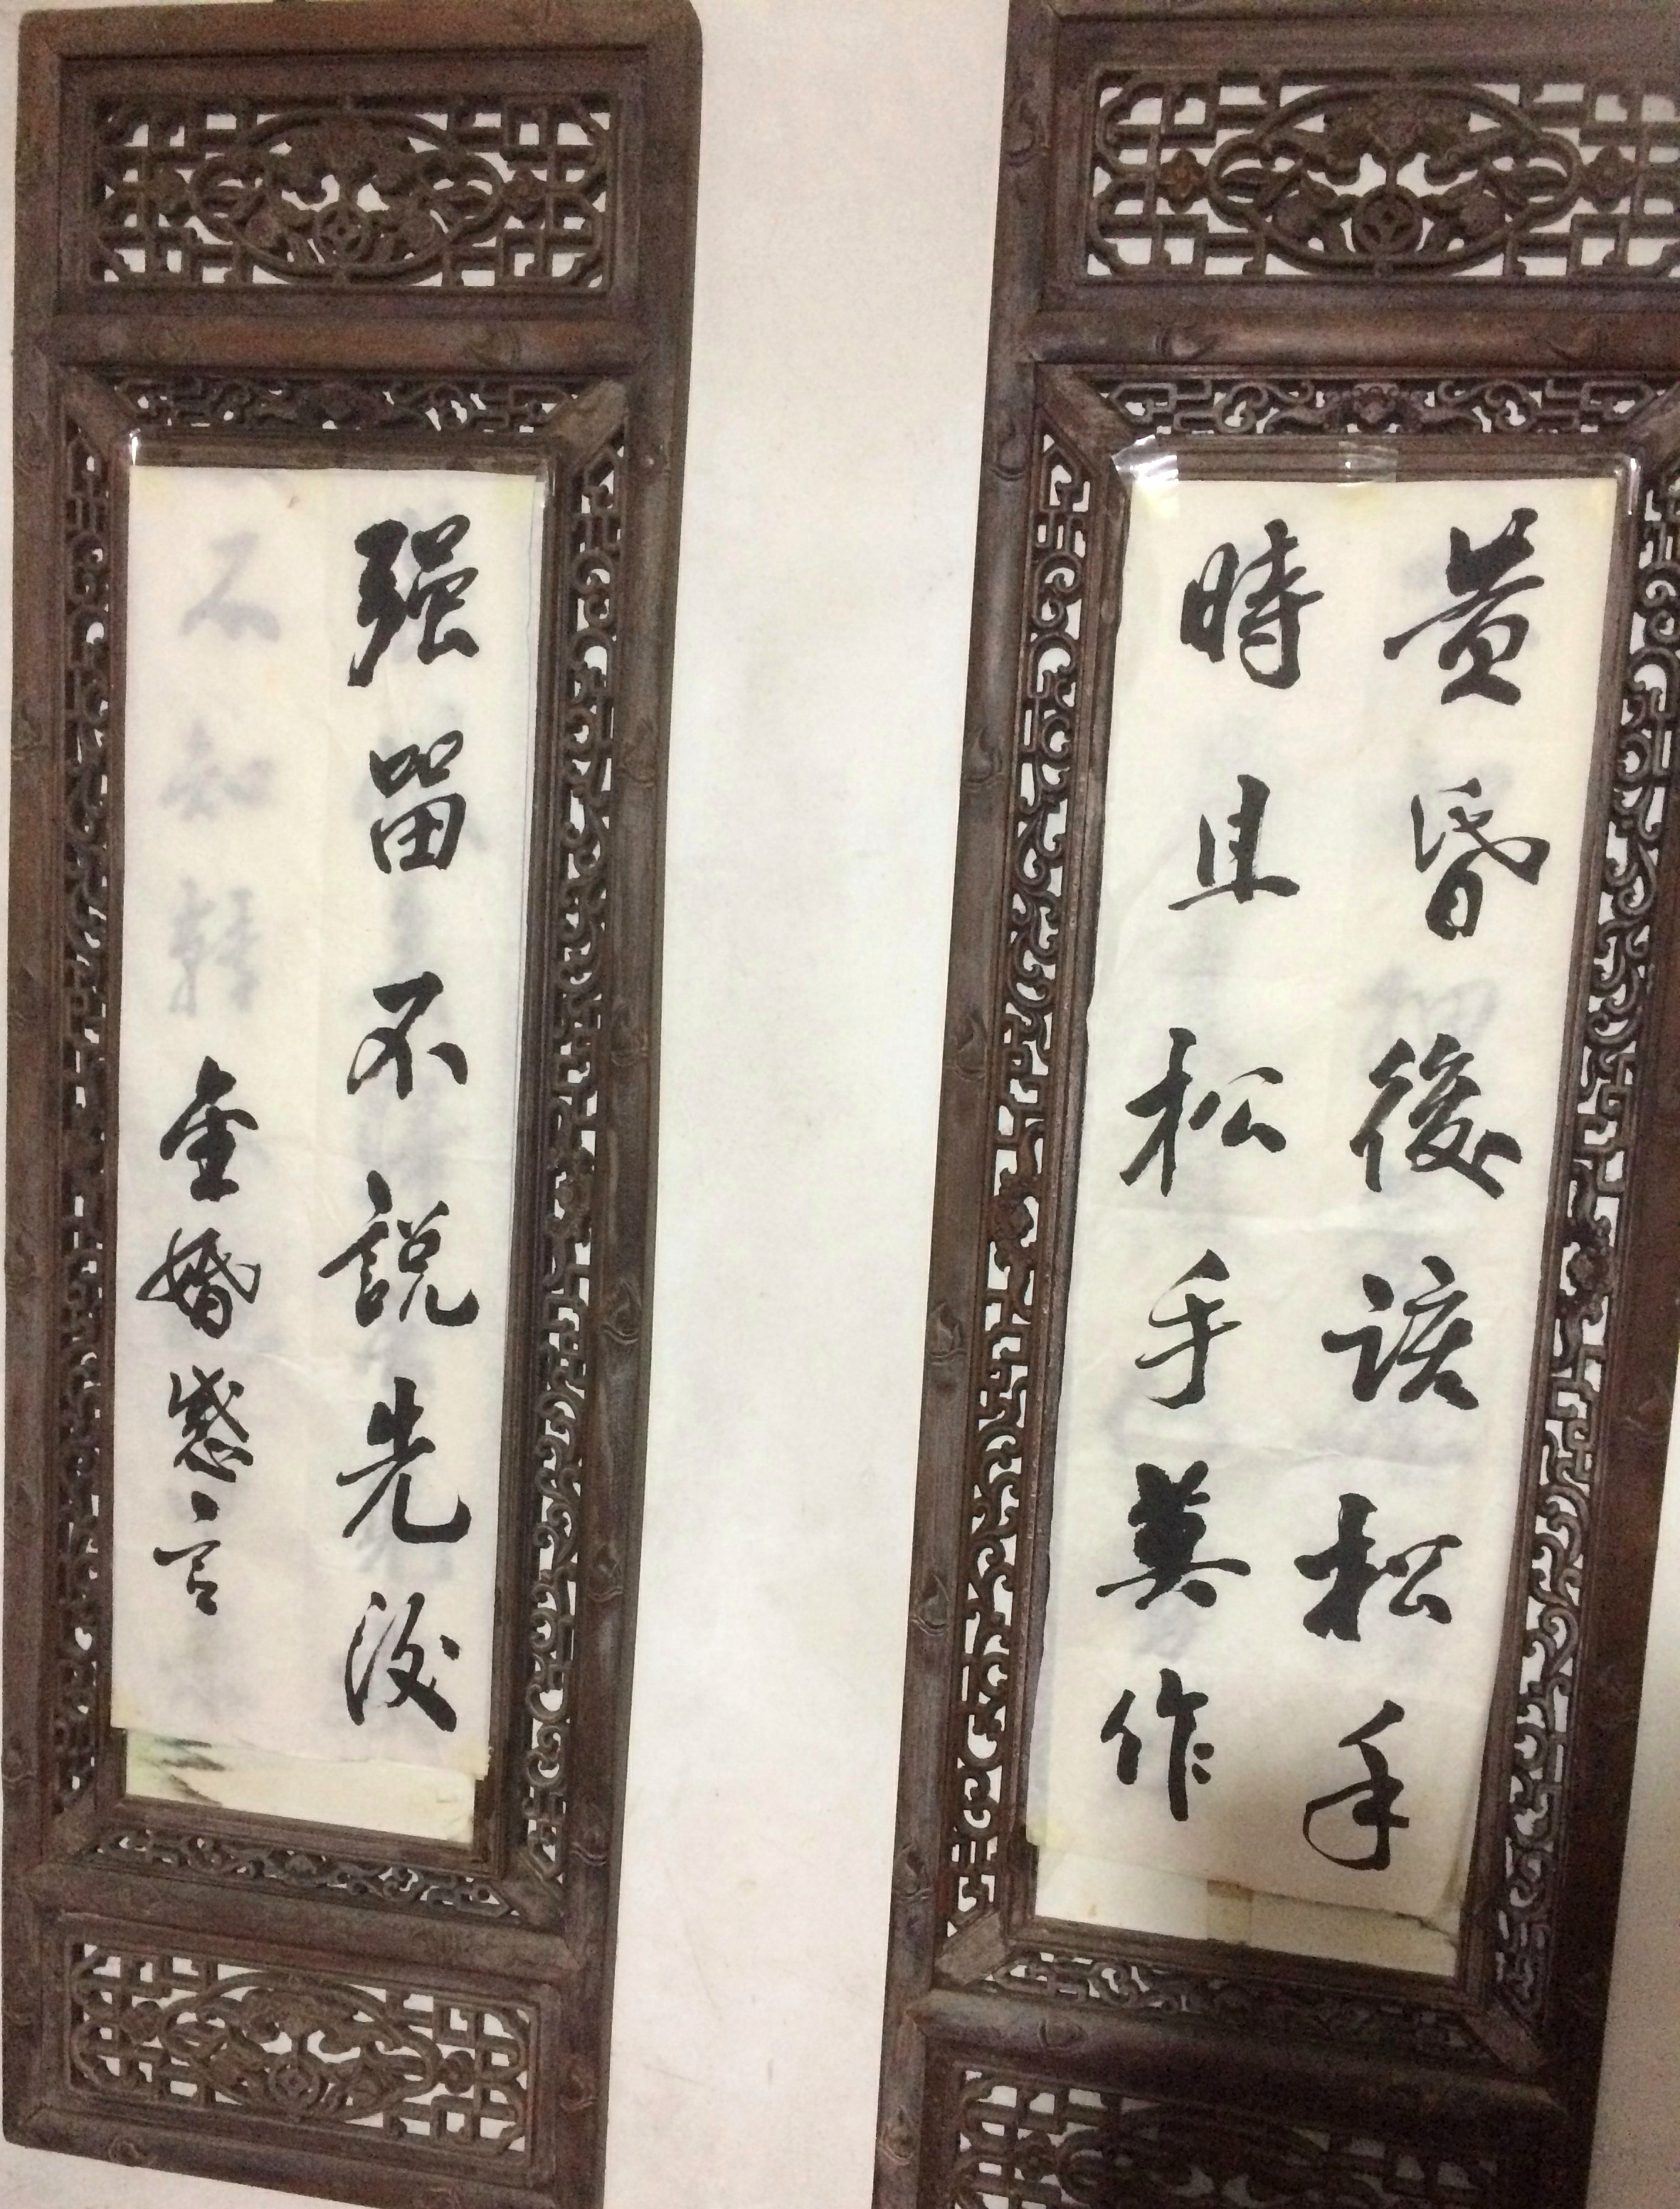 黄昏後該松手
時且松手莫作
强留不説先没
金婚感言